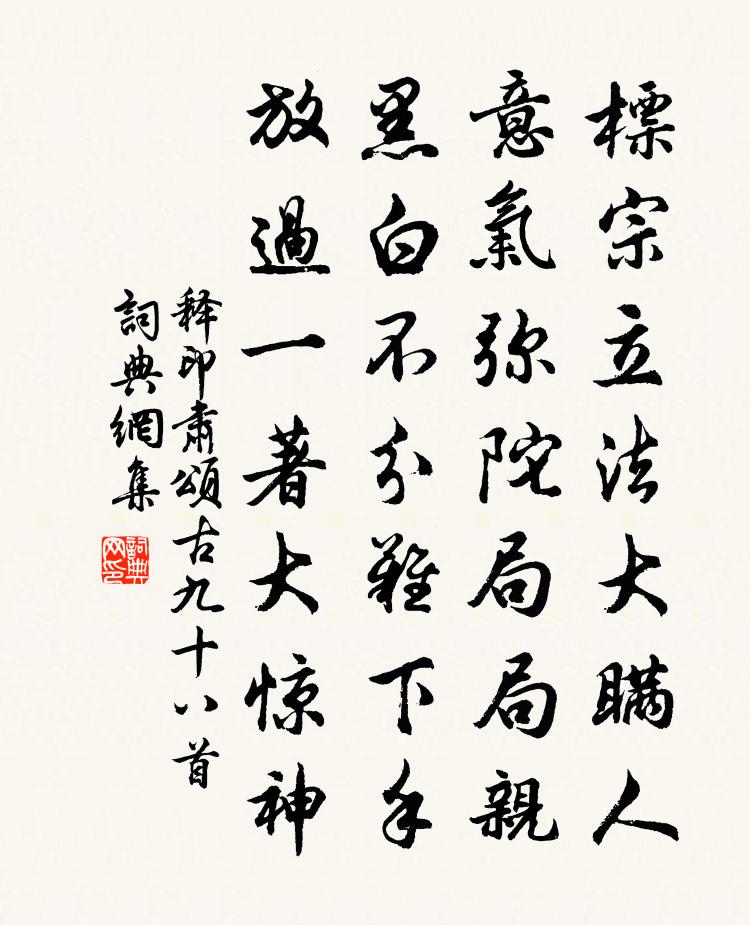 標宗立法大瞞人
意氣弥陀局局親
黑白不分難下手
放過一著大惊神
释印肅頌古九十八首
詞典網集
詞典网印